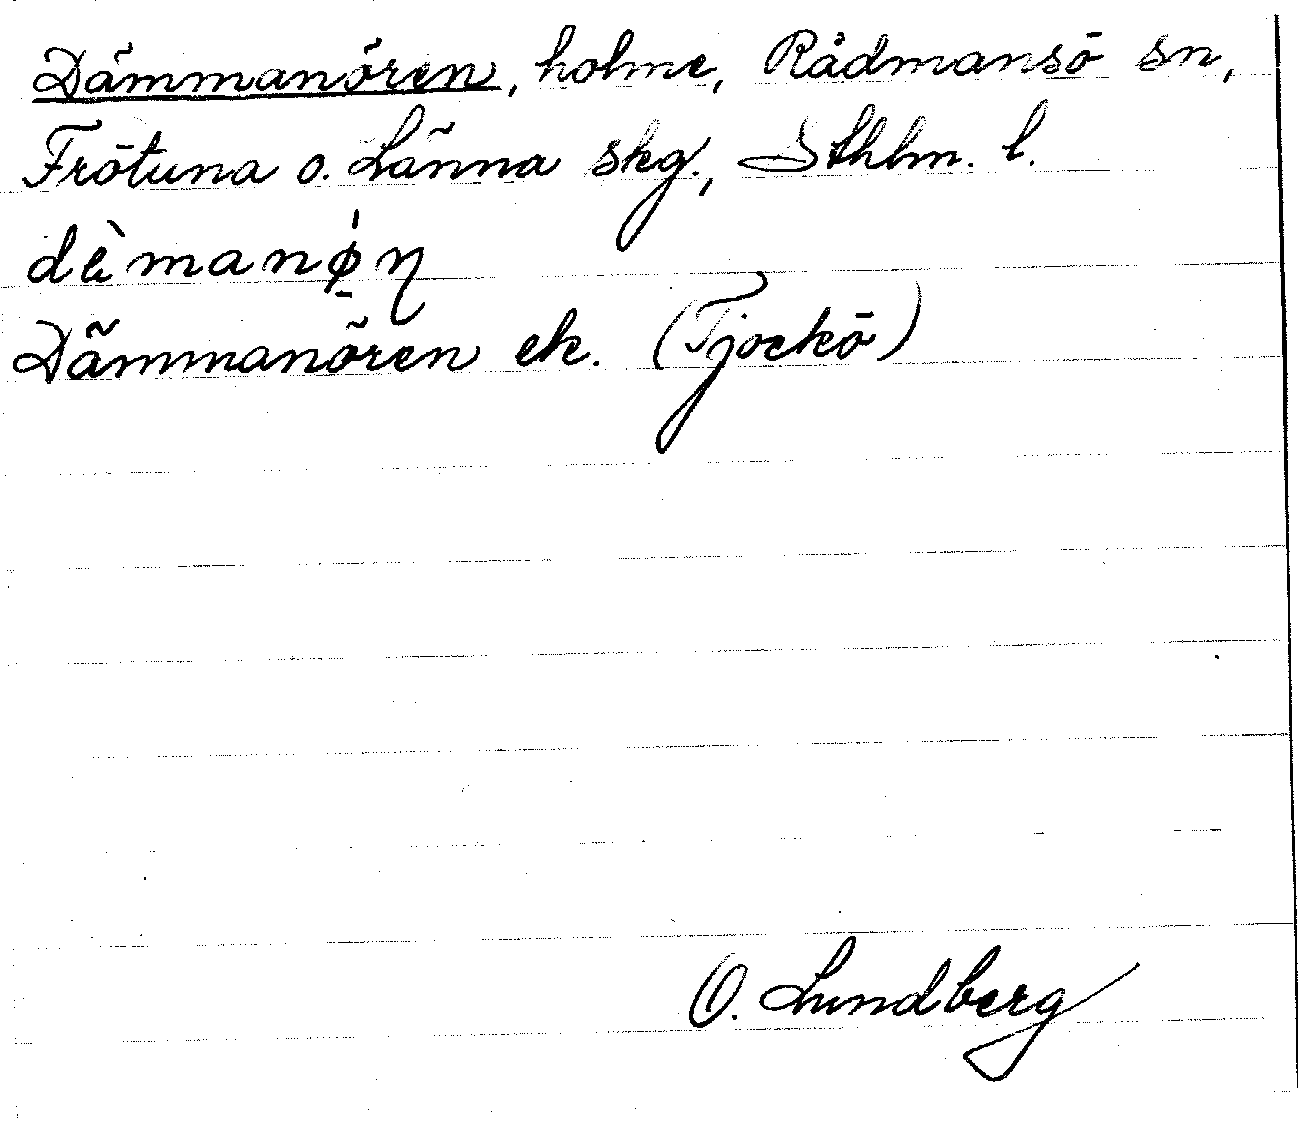 Dämmanören, holme, Rådmansö sn,
Frötuna o. Länna skg., Sthlm. l.
dèmanǿ̱η
Dämmanören ek. (Tjockö)
O. Lundberg